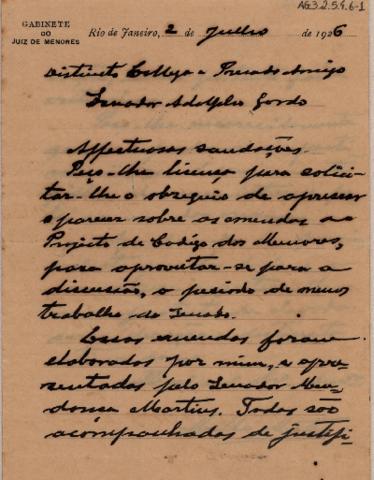 AG3.2.5.9.6-1
GABINETE
DO
JUIZ DE MENORES
Rio de Janeiro, 2 de Julho de 1926
Distincto Collega e Prezado Amigo
Senador Adolpho Gordo
Affectuosas saudações.
Peço-lhe licença para solici-
tar-lhe o obsequio de apressar
o parecer sobre as emendas ao
Projecto de Codigo dos Menores,
para aproveitar-se para a
discussão, o periodo de menos
trabalho do Senado.
Essas emendas foram
elaboradas por mim, e apre-
sentadas pelo Senador Men-
donça Martins. Todas são
acompanhadas de justifi-